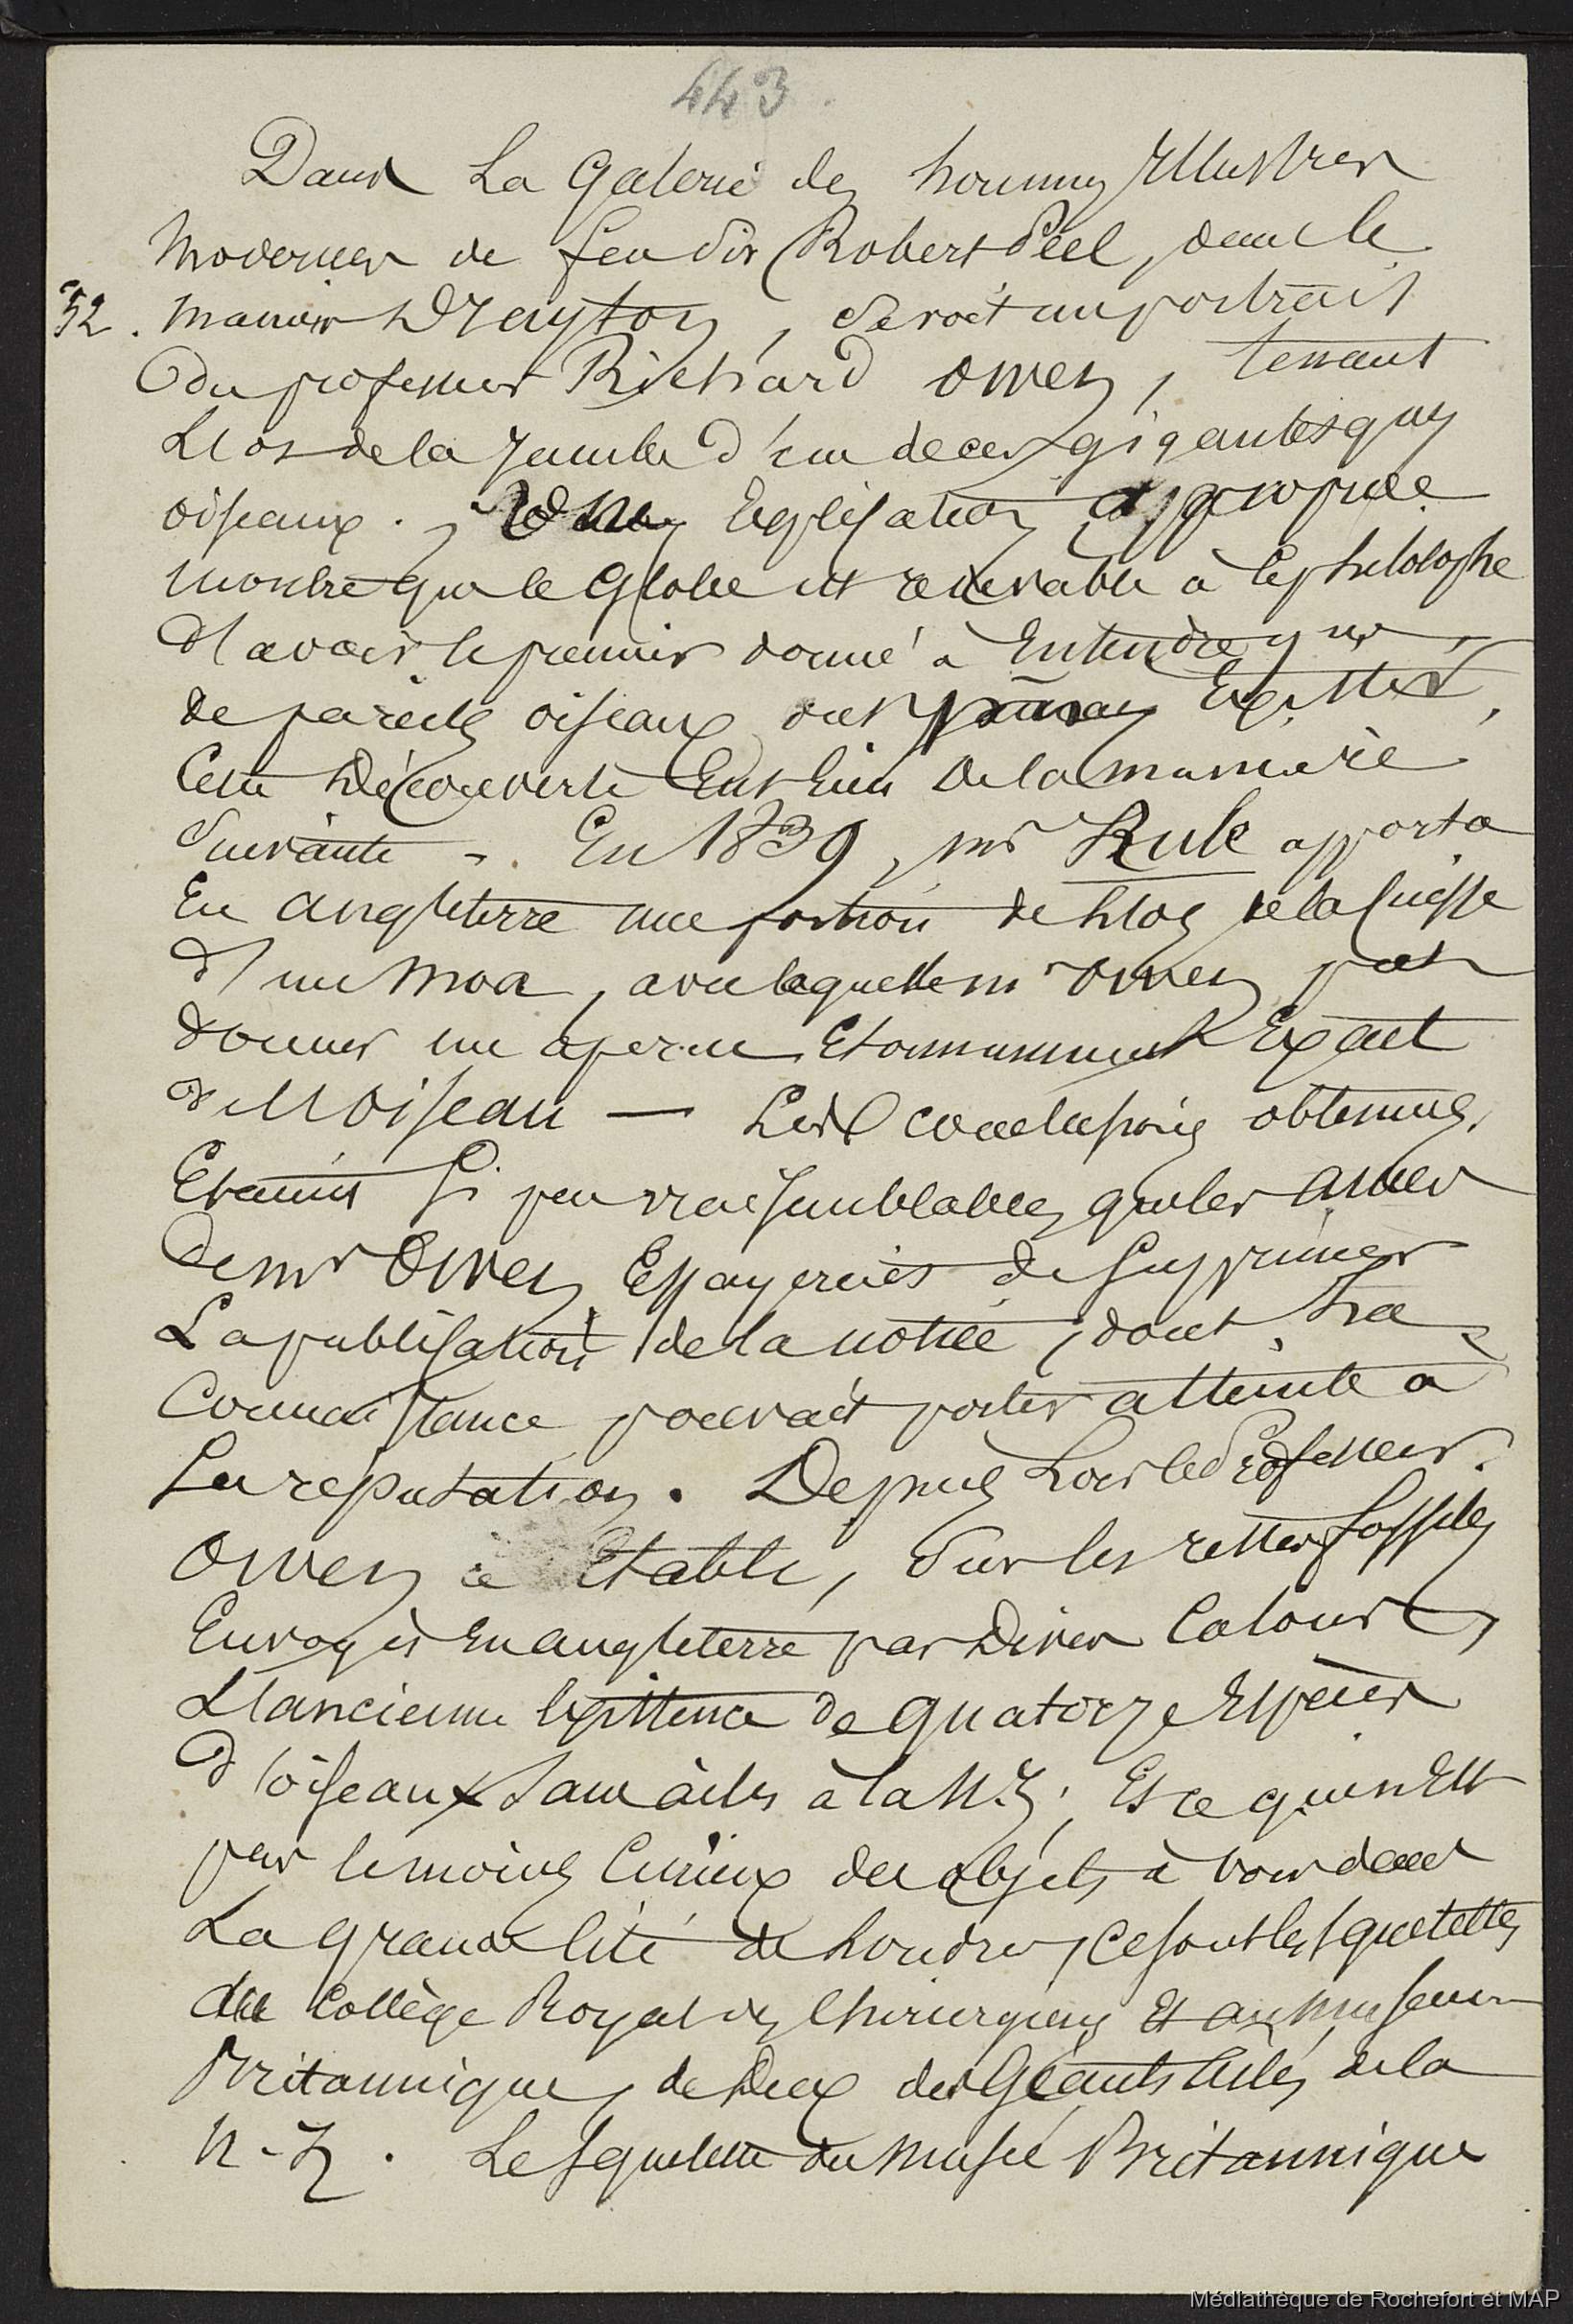 443.
Dans La Galerie des hommes Illustres
Modernes de feu Sir Robert Peel, dans le
52. manoir Drayton, Se voit un portrait
du professeur Richard Owen, tenant
L'os de la Jambe d'un de ces gigantesques
oiseaux. Explication appropriée
montre que le Globe est redevable à le philolophe
d'avoir le premier donné à Entendre que
de pareils oiseaux ont Existés,
Cette Découverte Eut lieu de la manière
Suivante - . En 1839, mr Rule apporta
En angleterre une portion de l'os de la Cuisse
d'un Moa, avec laquelle mr Owen put
donner un aperçu Etonnamment Exact
de l'oiseau — Les Conclusions obtenues,
Etaient si peu vraisemblables, que les amies
de mr Owen Essayerent de Supprimer
La publication de la notice, dont la
Connaissance pouvait porter atteinte à
Sa reputation. Depuis Lors le Professeur
Owen a Etabli, Sur les restes fossiles
Envoyés En angleterre par Divers Colons,
L'ancienne Existence de quatorze Espèces
d'oiseaux Sans ailes à la N.Z; Et ce qui n'Est
pas le moins Curieux des objets à voir dans
La grande Cité de Londres, Ce sont les squelettes
du Collège Royal des Chirurgiens Et au museum
Britannique, de Deux des Géants ailés de la
N-Z. Le Squelette du Musée Britannique
Médiathèque de Rochefort et MAP